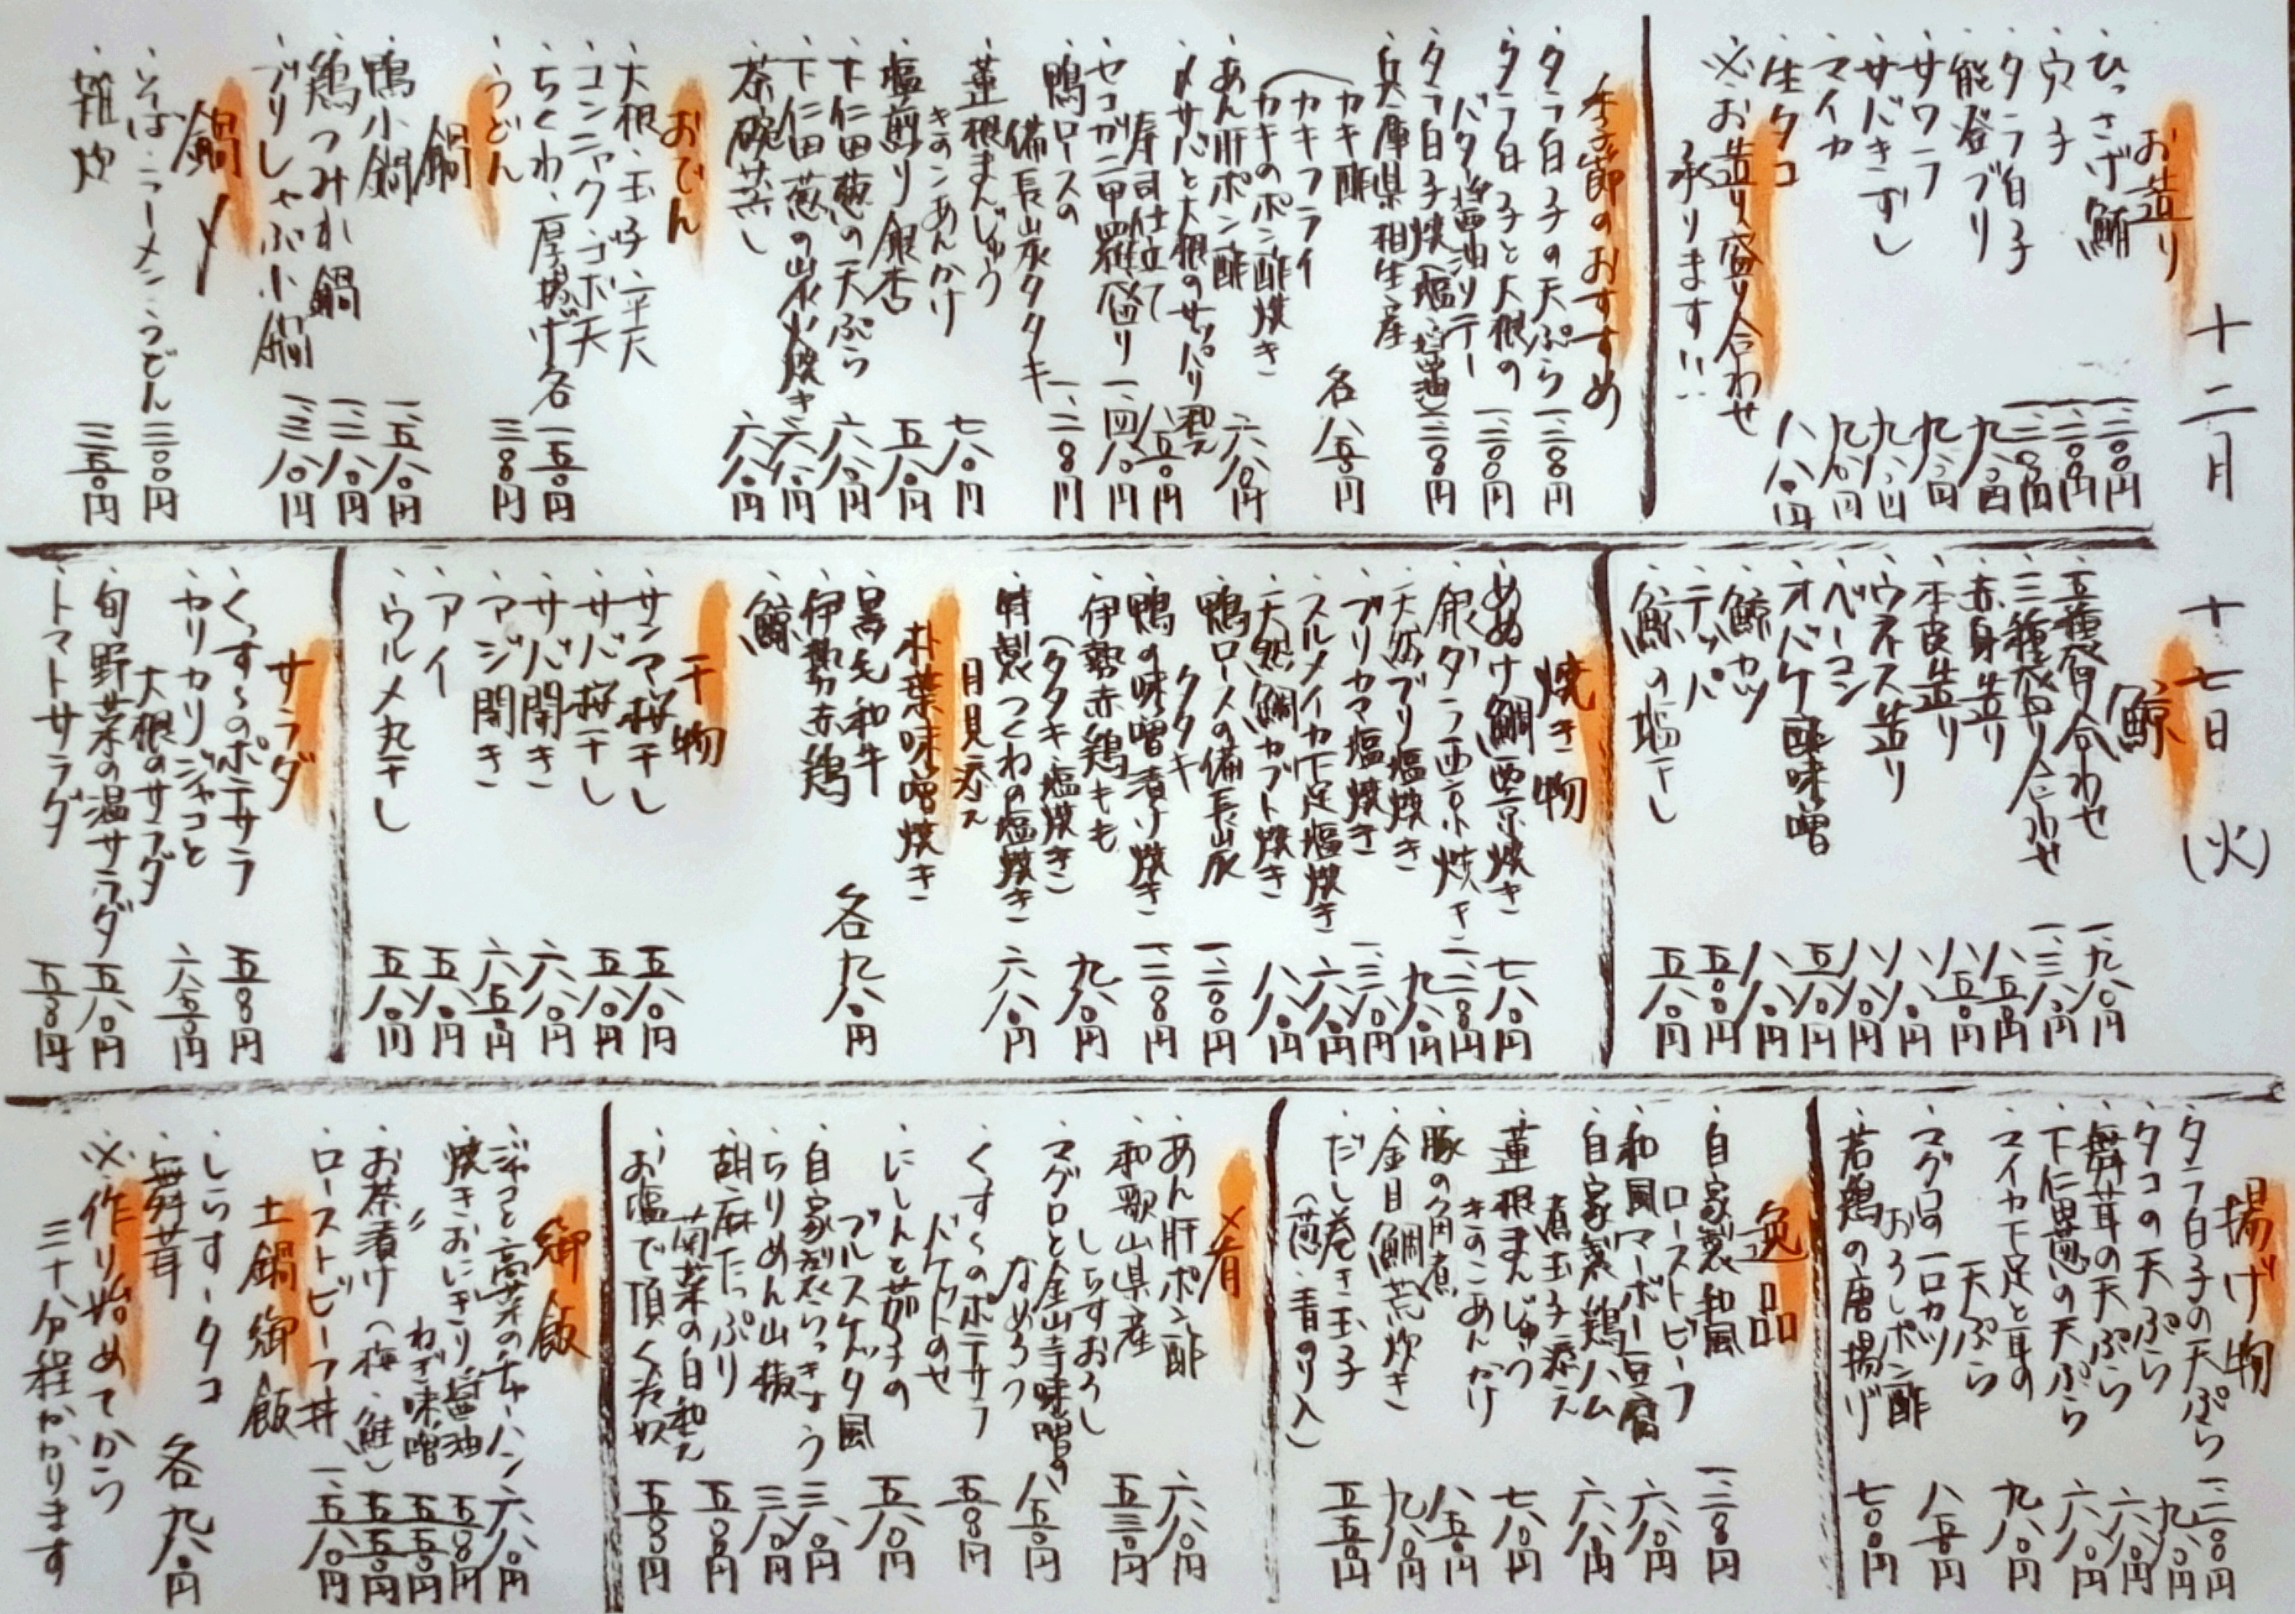 十二月 十七日 (火)
お造り
・ひっさげ鮪 一、二〇〇円
・穴子 一、二〇〇円
・タラ白子 一、二〇〇円
・能登ブリ 九八〇円
・サワラ 九八〇円
・サバきずし 九八〇円
・マイカ 九八〇円
・生タコ 八八〇円
※お造り盛り合わせ
承ります!!
季節のおすすめ
・タラ白子の天ぷら 一、二〇〇円
・タラ白子と大根の
バター醤油ソテー 一、二〇〇円
・タラ白子焼(塩・醤油) 一、二〇〇円
・兵庫県相生産
カキ酢
カキフライ
カキのポン酢焼き 各 八五〇円
・あん肝ポン酢 六八〇円
・〆サバと大根のサッパリ和え
寿司仕立て 八五〇円
・セコガニ甲羅盛り 一、四八〇円
・鴨ロースの
備長炭タタキ 一、二〇〇円
・蓮根まんじゅう
きのこあんかけ 七八〇円
・塩煎り銀杏 五八〇円
・下仁田葱の天ぷら 六八〇円
・下仁田葱の炭火焼き 六八〇円
・茶碗蒸し 六八〇円
おでん
・大根・玉子・平天
・コンニャク・ゴボ天
・ちくわ・厚揚げ 各 一五〇円
・うどん 三〇〇円
鍋
・鴨小鍋 一、五八〇円
・鶏つみれ鍋 一、二八〇円
・ブリしゃぶ小鍋 一、三八〇円
鍋〆
・そば・ラーメン・うどん 三〇〇円
・雑炊 三五〇円
鯨
・五種盛り合わせ 一、九八〇円
・三種盛り合わせ 一、三八〇円
・赤身造り 八五〇円
・本皮造り 八五〇円
・ウネス造り 八八〇円
・ベーコン 八八〇円
・オバケ酢味噌 五八〇円
・鯨カツ 八八〇円
・テッパ 五〇〇円
・鯨の塩干し 五八〇円
焼き物
・めぬけ鯛西京焼き 七八〇円
・銀ダラ西京焼き 一、二〇〇円
・天然ブリ塩焼き 九八〇円
・ブリカマ塩焼き 一、三八〇円
・スルメイカ下足塩焼き 六八〇円
・天然鯛カブト焼き 八八〇円
・鴨ロースの備長炭
タタキ 一、二〇〇円
・鴨の味噌漬け焼き 一、二〇〇円
・伊勢赤鶏もも
(タタキ・塩焼き) 九八〇円
・特製つくねの塩焼き
月見添え 六八〇円
朴葉味噌焼き
・黒毛和牛
・伊勢赤鶏
・鯨 各 九八〇円
干物
・サンマ桜干し 五八〇円
・サバ桜干し 五八〇円
・サバ開き 六八〇円
・アジ開き 六五〇円
・アイ 五八〇円
・ウルメ丸干し 五八〇円
サラダ
・くす〜のポテサラ 五〇〇円
・カリカリジャコと
大根のサラダ 六五〇円
・旬野菜の温サラダ 五八〇円
・トマトサラダ 五〇〇円
揚げ物
・タラ白子の天ぷら 一、二〇〇円
・タコの天ぷら 九八〇円
・舞茸の天ぷら 六八〇円
・下仁田葱の天ぷら 六八〇円
・マイカ下足と耳の
天ぷら 九八〇円
・マグロの一口カツ
おろしポン酢 八五〇円
・若鶏の唐揚げ 七〇〇円
逸品
・自家製和風
ローストビーフ 一、二〇〇円
・和風マーボー豆腐 六八〇円
・自家製鶏ハム
煮玉子添え 六八〇円
・蓮根まんじゅう
きのこあんかけ 七八〇円
・豚の角煮 八五〇円
・金目鯛荒炊き 九八〇円
・だし巻き玉子
(葱・青のり入) 五五〇円
〆肴
・あん肝ポン酢 六八〇円
・和歌山県産
しらすおろし 五三〇円
・マグロと金山寺味噌の
なめろう 八五〇円
・くす〜のポテサラ
バケットのせ 五〇〇円
・にしんと茄子の
ブルスケッタ風 五八〇円
・自家製らっきょう 三八〇円
・ちりめん山椒 三八〇円
・胡麻たっぷり
菊菜の白和え 五〇〇円
・お塩で頂く冷奴 五〇〇円
御飯
・ジャコと高菜のチャーハン 六八〇円
・焼きおにぎり 醤油 五〇〇円
・〃 ねぎ味噌 五五〇円
・お茶漬け(梅・鮭) 五五〇円
・ローストビーフ丼 一、五八〇円
土鍋御飯
・しらす ・タコ
・舞茸 各 九八〇円
※作り始めてから
三十分程かかります